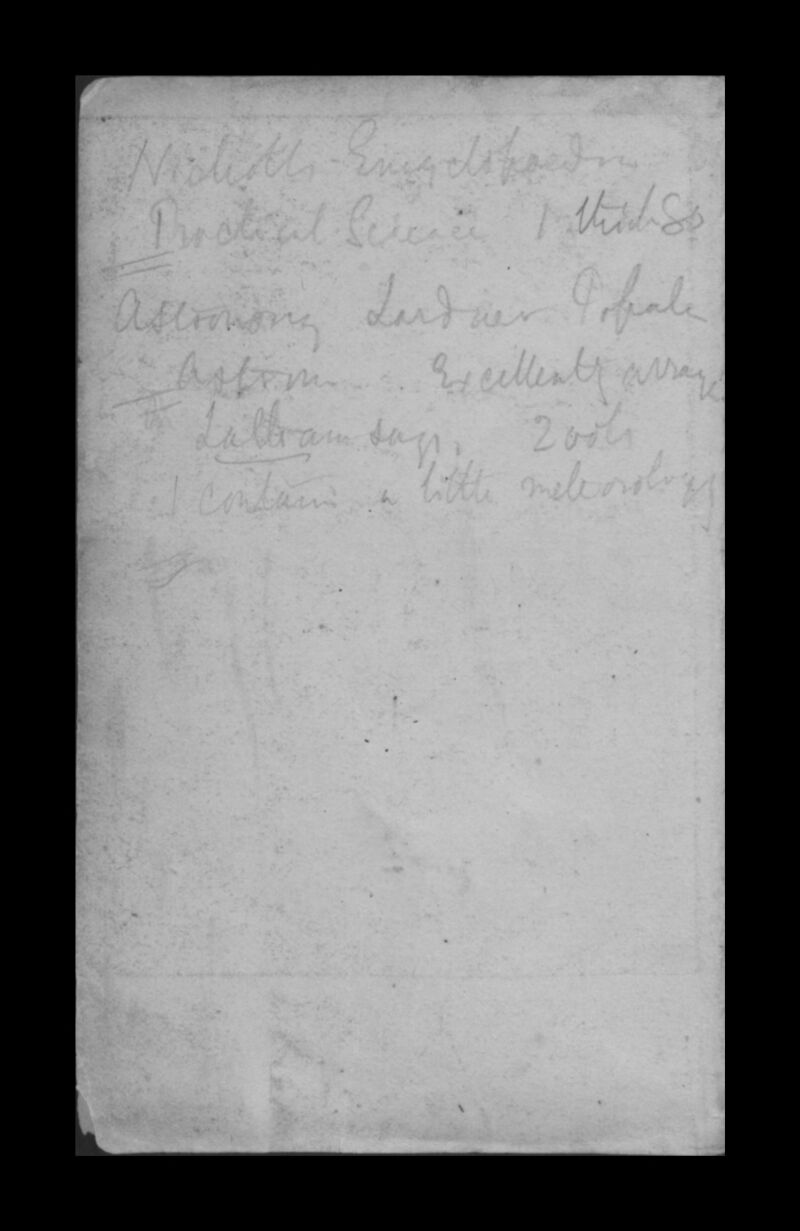 Nicholls Encyclopaedia
Practical Science 1 thick 8o
Astronomy Lardner Popular
Astrom Excellently arrange
Lattram says, 2 vols
1 contain a little meteorology